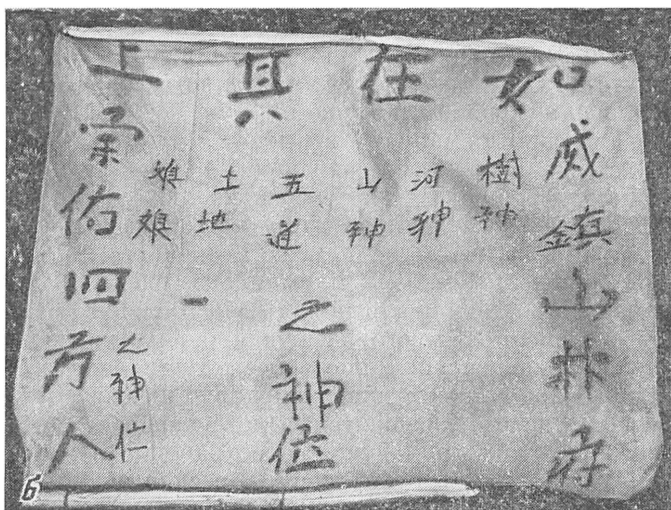 如在其上
威鎮山林
樹神
河神
山神
五道
土地
娘娘
之神位
一
之神仁
佑四方人
б